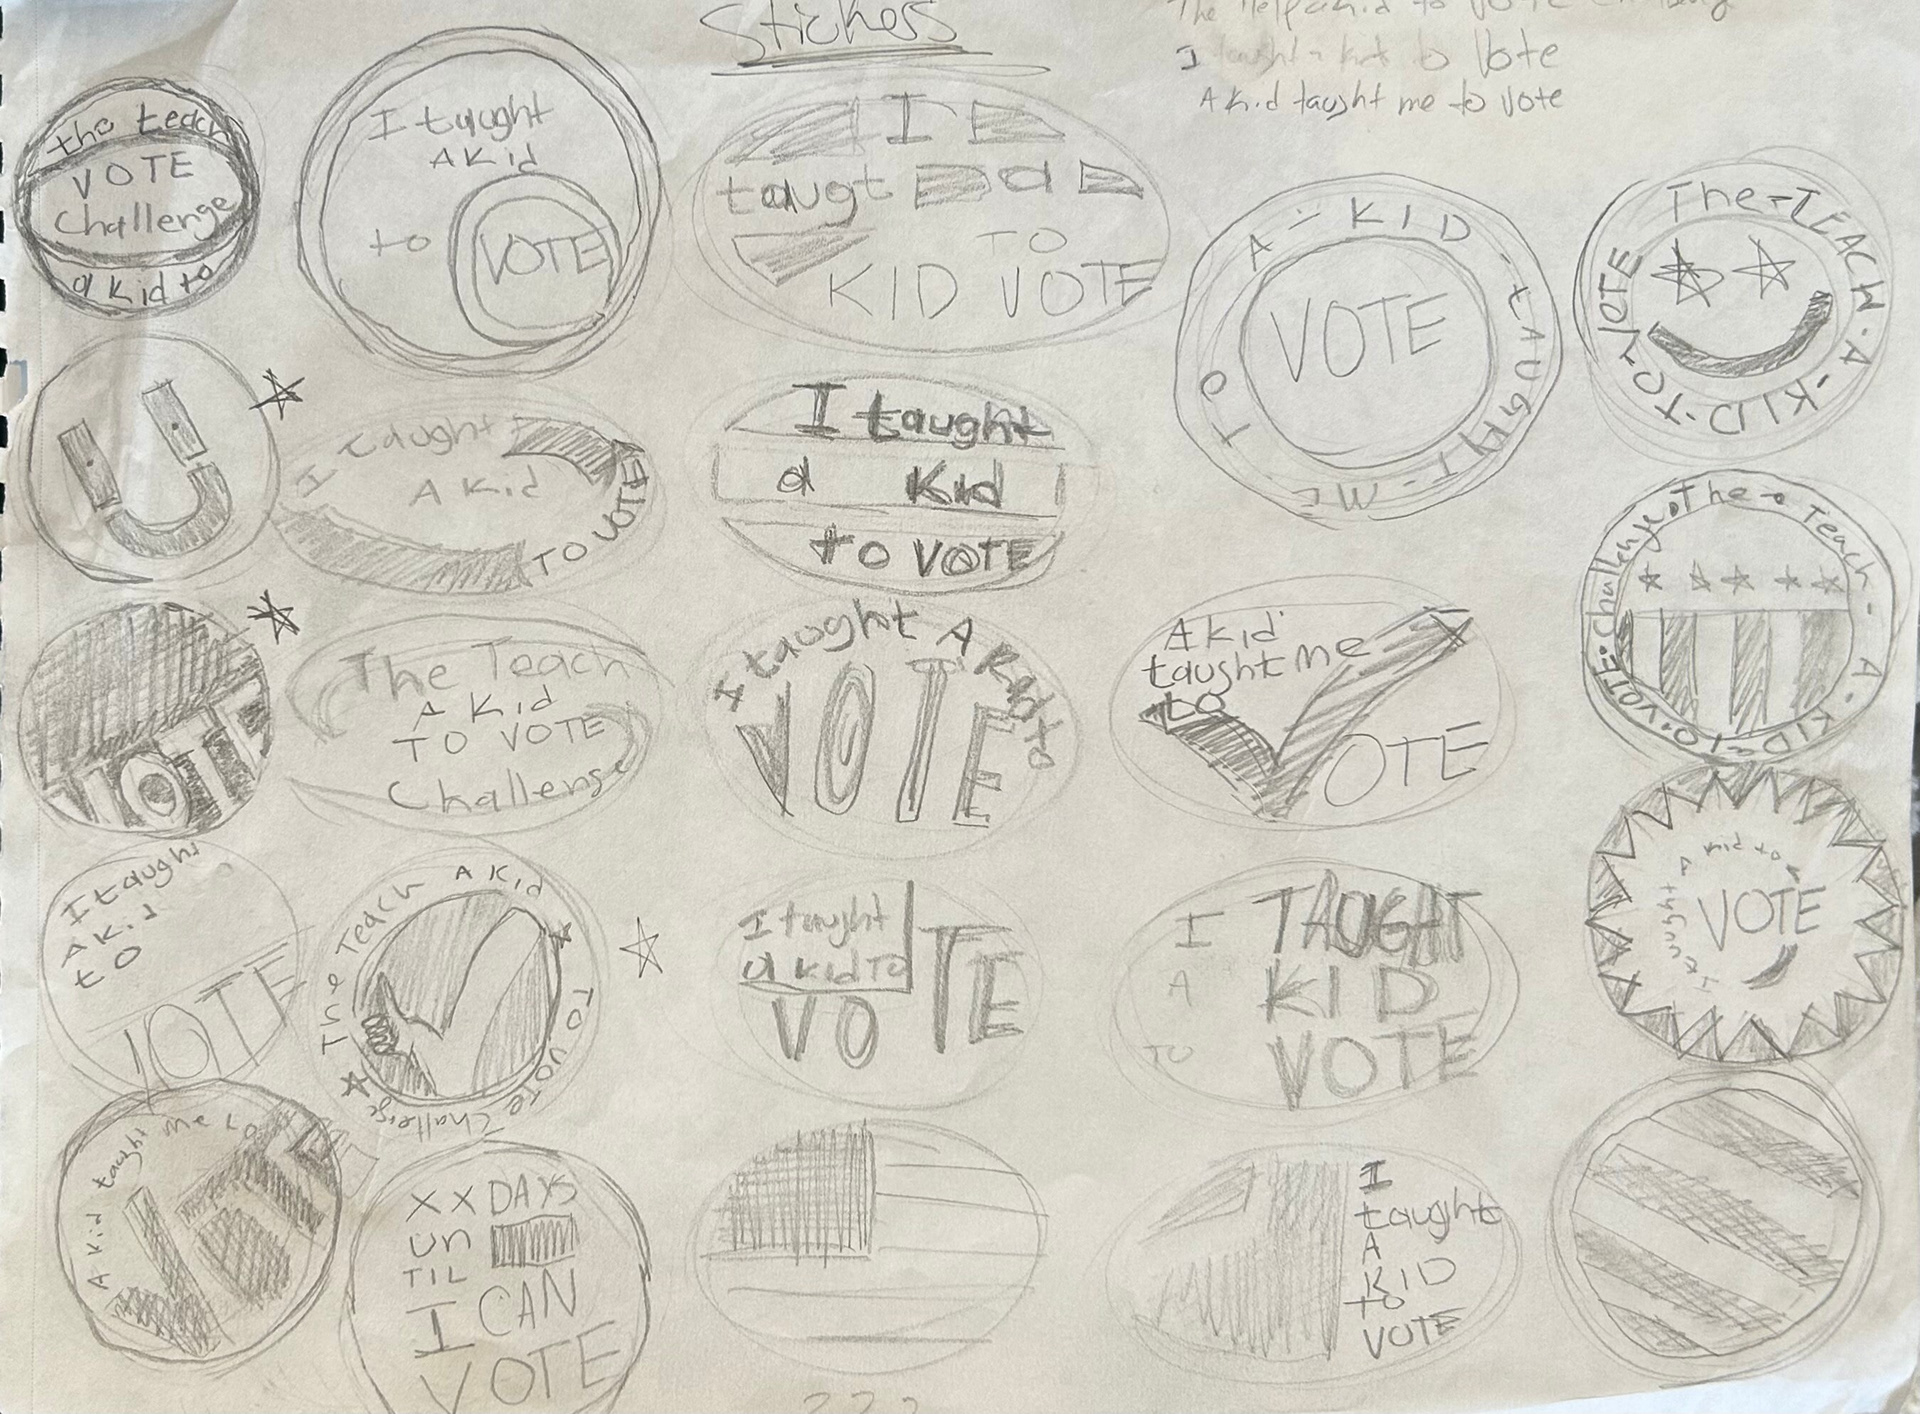 Stickers
The Help a Kid to Vote Challenge
I taught a kid to Vote
A Kid taught me to vote
the teach
VOTE
Challenge
a kid to
I taught
A Kid
to
VOTE
I
taugt a
TO
KID VOTE
A-KID-tAUGHT-ME-TO
VOTE
The-TEACH-A-KID-TO-VOTE
I taught
A Kid
TO VOTE
I taught
a Kid
to VOTE
The Teach - A-KID-TO-VOTE-Challenge
VOTE
The Teach
A Kid
TO VOTE
Challenge
I taught A Kid to
VOTE
A Kid
taught me
to
VOTE
I taught
A Kid
to
VOTE
The Teach A Kid TO VOTE Challenge
I taught
a kid TO
VOTE
I TAUGHT
A KID
TO VOTE
I taught A kid to
VOTE
A kid taught me to
VOTE
XX DAYS
UN
TIL
I CAN
VOTE
I
taught
A
KID
to
VOTE
???